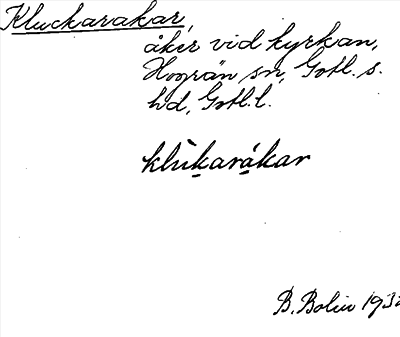 Kluckarakar,
åker vid kyrkan,
Hogrän sn, Gotl. s.
hd, Gotl. l.
klùkarákar
B. Bolin